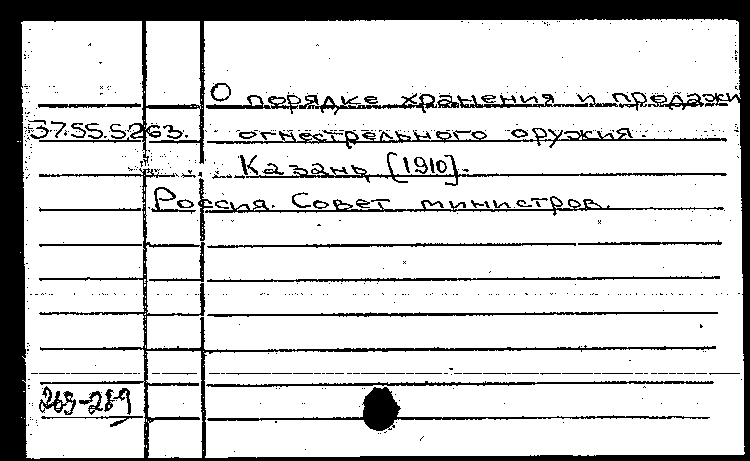 О порядке хранения и продажи
37.55.5263. огнестрельного оружия.
Казань [1910].
Россия. Совет министров.
269-289